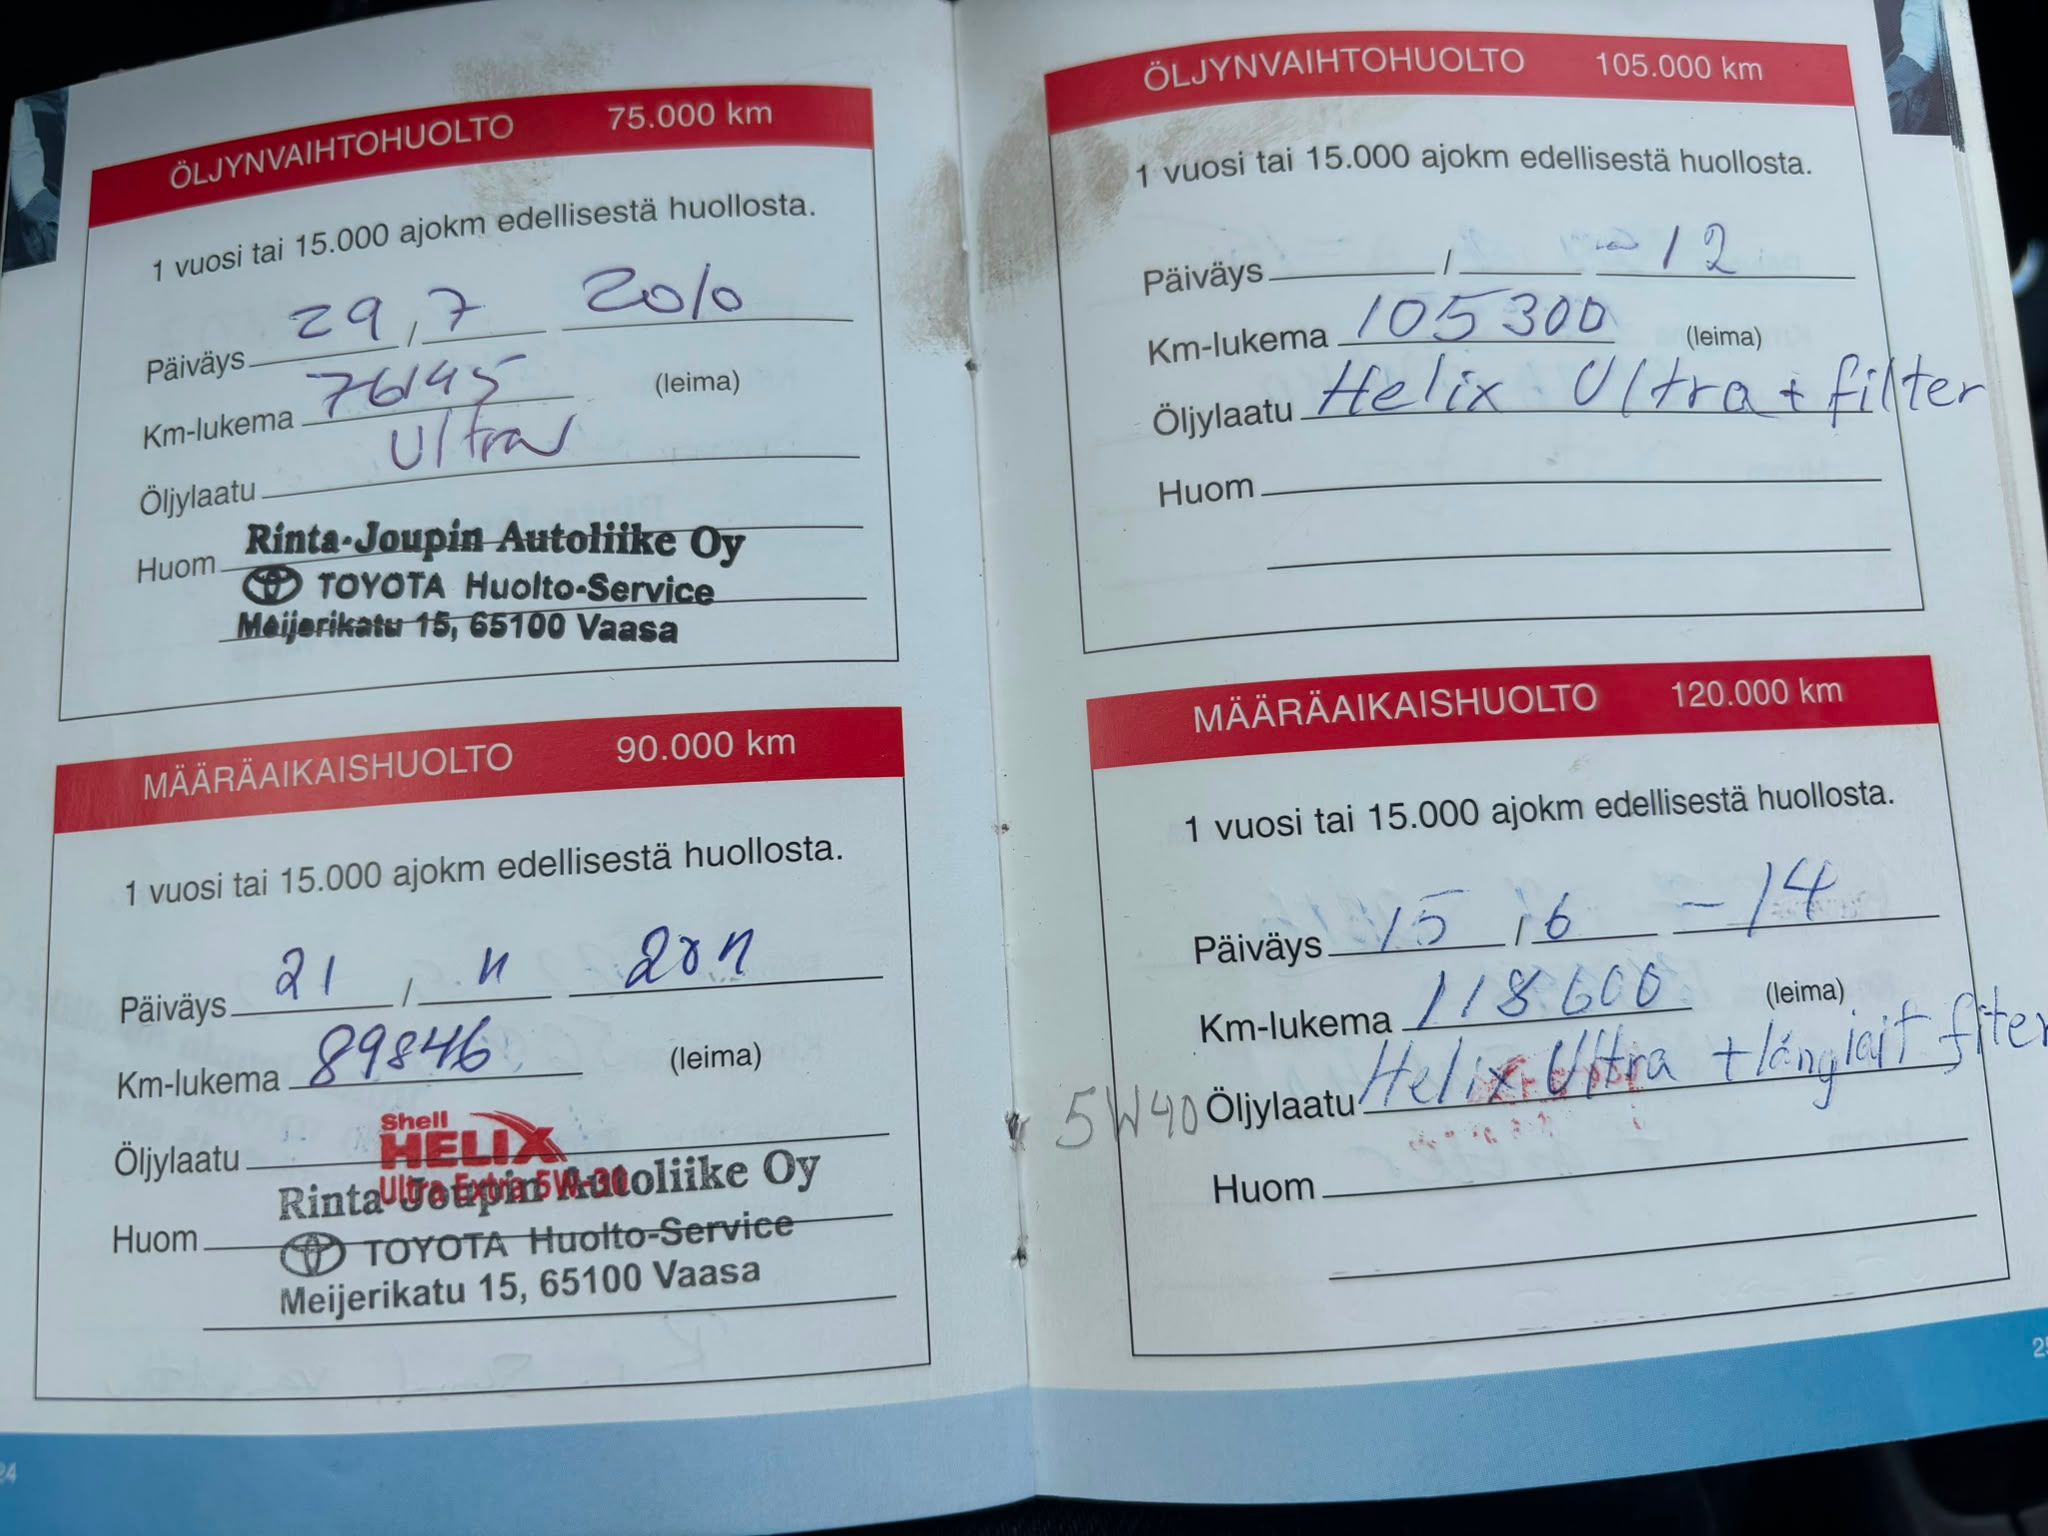 ÖLJYNVAIHTOHUOLTO 75.000 km
1 vuosi tai 15.000 ajokm edellisestä huollosta.
Päiväys 29 / 7 2010
Km-lukema 76145 (leima)
Öljylaatu Ultra
Huom
Rinta-Joupin Autoliike Oy
TOYOTA Huolto-Service
Meijerikatu 15, 65100 Vaasa
MÄÄRÄAIKAISHUOLTO 90.000 km
1 vuosi tai 15.000 ajokm edellisestä huollosta.
Päiväys 21 / 11 2011
Km-lukema 89846 (leima)
Shell
HELIX
Öljylaatu
Ultra Extra 5W-30
Rinta-Joupin Autoliike Oy
Huom
TOYOTA Huolto-Service
Meijerikatu 15, 65100 Vaasa
24
ÖLJYNVAIHTOHUOLTO 105.000 km
1 vuosi tai 15.000 ajokm edellisestä huollosta.
Päiväys / -12
Km-lukema 105300 (leima)
Öljylaatu Helix Ultra + filter
Huom
MÄÄRÄAIKAISHUOLTO 120.000 km
1 vuosi tai 15.000 ajokm edellisestä huollosta.
Päiväys 15 / 6 -14
Km-lukema 118.600 (leima)
5W40 Öljylaatu Helix Ultra + filter
Huom
25